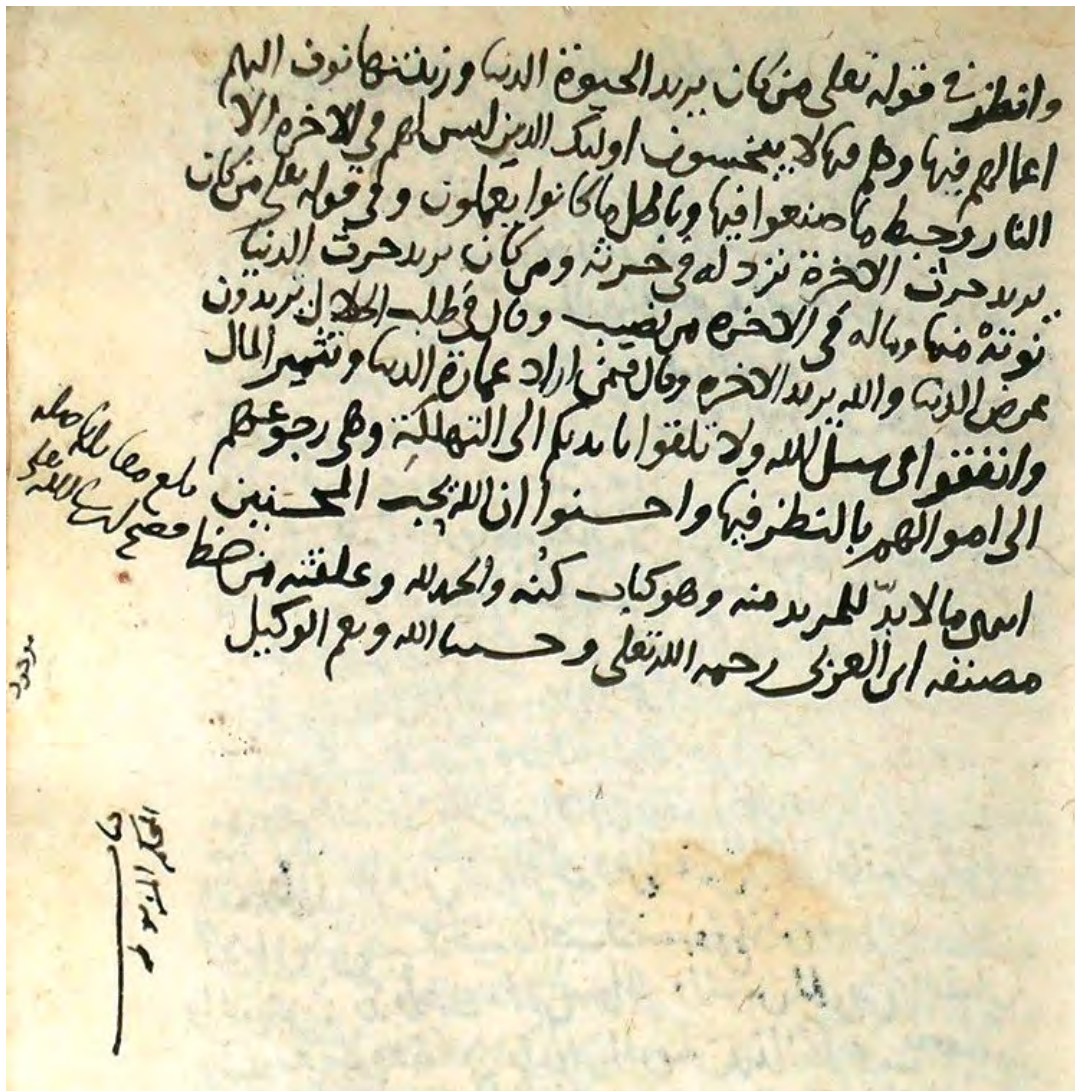 وانظر في قوله تعلى من كان يريد الحيوة الدنيا وزينتها نوف اليهم
اعمالهم فيها وهم فيها لا يبخسون اوليك الذين ليس لهم في الاخرة الا
النار وحبط ما صنعوا فيها وباطل ما كانوا يعملون وفي قوله تعلى من كان
يريد حرث الاخرة نزد له في حرثه ومن كان يريد حرث الدنيا
نوته منها وماله في الاخره من نصيب وقال في طلب الحلال تريدون
عرض الدنيا والله يريد الاخره وقال فمن اراد عمارة الدنيا وتثمير المال
وانفقوا في سبيل الله ولا تلقوا بايديكم الى التهلكة وهي رجوعهم
الى اموالهم بالنظر فيها واحسنوا ان الله يحب المحسنين
اسمى ما لابدّ للمريد منه وهو كتاب كنه والحمد لله وعلقته من خط
مصنفه ابن العربي رحمه الله تعلى وحسبنا الله ونعم الوكيل
بلغ مقابلة باصله
فصح ان شا الله تعلى